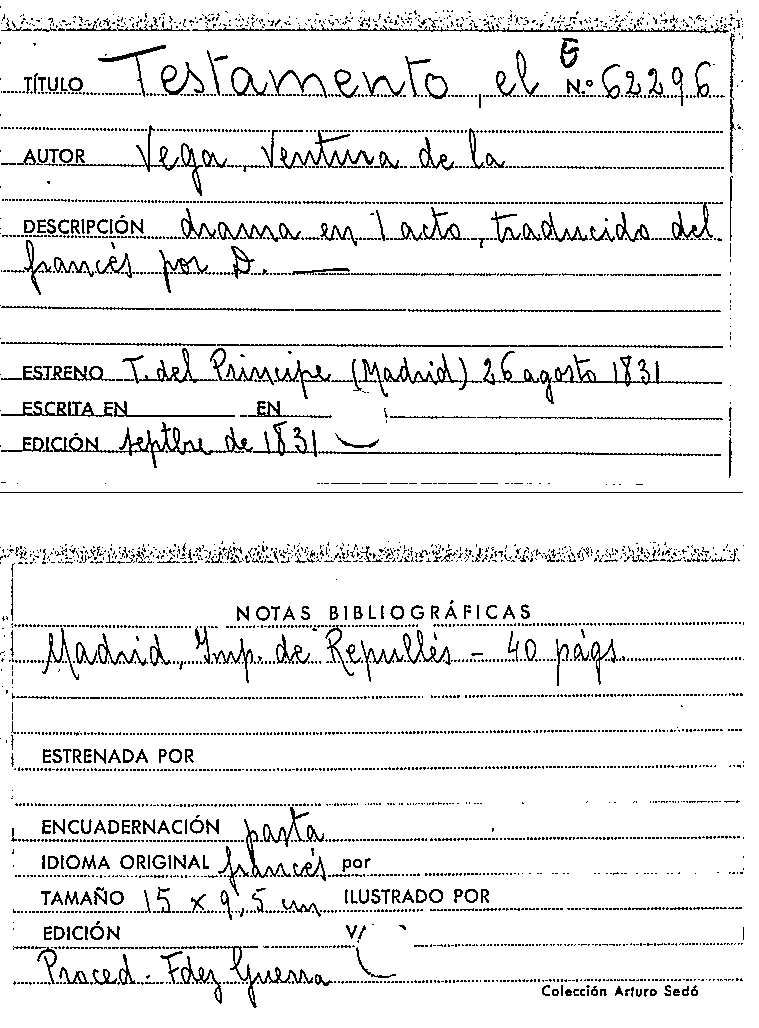 TÍTULO Testamento, el N.º 62296
AUTOR Vega, Ventura de la
DESCRIPCIÓN drama en 1 acto, traducido del
francés por D. —
ESTRENO T. del Principe (Madrid) 26 agosto 1831
ESCRITA EN EN
EDICIÓN septbre de 1831
NOTAS BIBLIOGRÁFICAS
Madrid, Imp. de Repullés - 40 págs.
ESTRENADA POR
ENCUADERNACIÓN pasta
IDIOMA ORIGINAL francés por
TAMAÑO 15 x 9,5 cm ILUSTRADO POR
EDICIÓN V/
Proced. Fdez Guerra
Colección Arturo Sedó